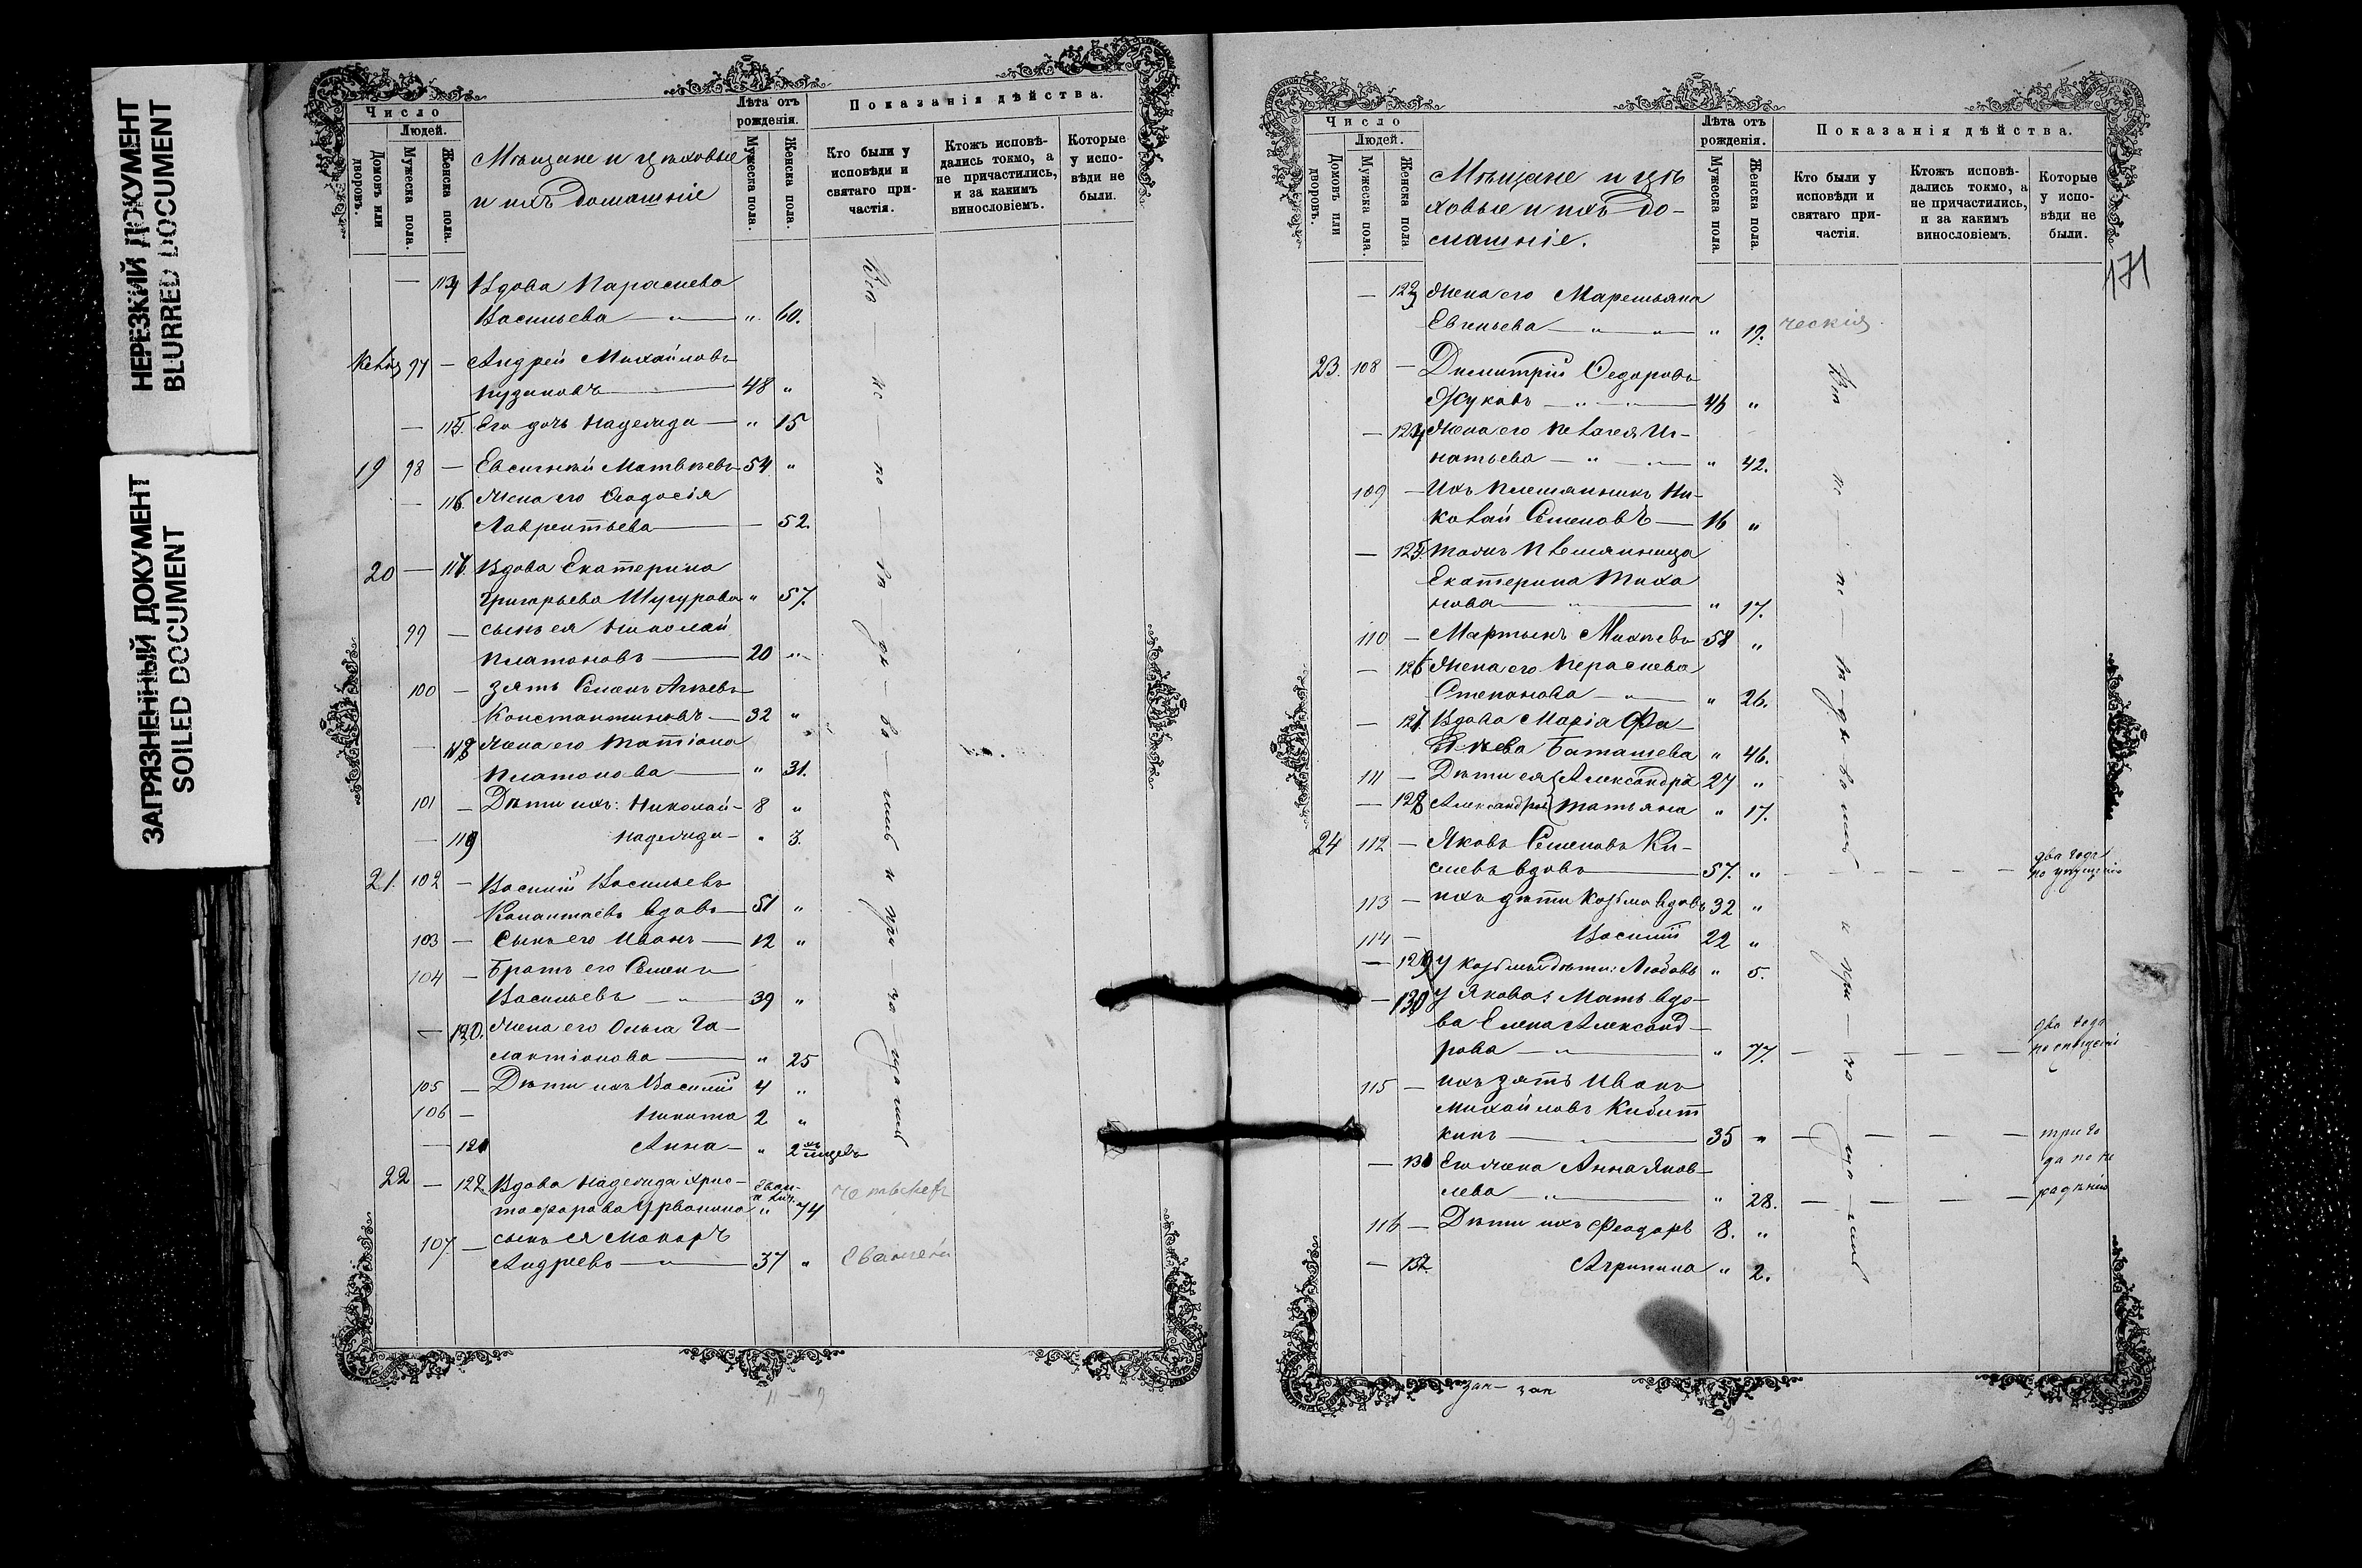 НЕРЕЗКИЙ ДОКУМЕНТ
BLURRED DOCUMENT
ЗАГРЯЗНЕННЫЙ ДОКУМЕНТ
SOILED DOCUMENT
Число
Людей.
Домовъ или дворовъ.
Мужеска пола.
Женска пола.
Мѣщане и цѣховые
и ихъ домашніе
Лѣта отъ рожденія.
Мужеска пола.
Женска пола.
Показанія дѣйства.
Кто были у исповѣди и святаго причастія.
Ктожъ исповѣдались токмо, а не причастились, и за какимъ винословіемъ.
Которые у исповѣди не были.
— 114 Вдова Параскева
Васильева — " 60.
97 — Андрей Михайловъ
48 "
— 115. Его дочь Надежда — " 15
19 98 — Евсигній Матвѣевъ 54 "
— 116. Жена его Ѳеодосія
Лаврентьева — — 52.
20 — 117. Вдова Екатерина
Григорьева Шугурова " 57.
99 — сынъ ея Николай
Платоновъ — 20 "
100 — Зять Семенъ
Константиновъ — 32 "
— 118 Жена его Татіана
Платонова — " 31.
101 — Дѣти ихъ: Николай — 8 "
— 119 Надежда — " 3.
21. 102 — Василій Васильевъ
вдовъ — 51 "
103 — Сынъ его Иванъ — 12 "
104 — Братъ его Семенъ
Васильевъ — " — 39 "
— 120. Жена его Ольга Га-
лактіонова — " 25
105 — Дѣти ихъ Василій 4 "
106 — Никита 2 "
— 121 Анна — " 2
22 — 122. Вдова Надежда Хрис-
тофорова " 74
107 — сынъ ея Макаръ
Андреевъ — " — 37 "
Число
Людей.
Домовъ или дворовъ.
Мужеска пола.
Женска пола
Мѣщане и цѣ
ховые и ихъ до-
машніе.
Лѣта отъ рожденія.
Мужеска пола.
Женска пола.
Показанія дѣйства.
Кто были у исповѣди и святаго причастія.
Ктожъ исповѣдались токмо, а не причастились, и за какимъ винословіемъ.
Которые у исповѣди не были.
171
— 123 Жена его
" 19. ческія
23. 108 — Димитрій Ѳедоровъ
Жуковъ — " — " — 46 "
— 124 Жена его Пелагея Иг-
натьева — " — " — " 42.
109 — Ихъ племянникъ Ни-
колай Семеновъ — 16 "
— 125. тожъ племянница
Екатерина Тихо
нова — " — " 17.
110 — Мартынъ 58 "
— 126 Жена его Параскева
Степанова — " — " 26.
— 127. Вдова Марія Фа-
дѣева Баташева " 46.
111 — Дѣти ея Александръ 27 "
— 128 Александровы Татьяна " 17.
24 112 — Яковъ Семеновъ Ки-
селевъ вдовъ — 57. " — — — — два года
113 — ихъ дѣти Козьма вдовъ 32 "
114 — Василій 22 "
— 129 У Козьмы дѣти: Любовь " 5.
— 130 У Якова: Мать вдо-
ва Елена Александ-
рова — " — " 77. — — — — два года
115 — ихъ зять Иванъ
Михайловъ Кибит
кинъ — " — 35 " — — — — три го
— 131 Его жена Анна Яков- да по не
лева — " — " 28. — — — — радѣнію
116 — Дѣти ихъ Феодоръ 8. "
— 132. Агрипина " 2.